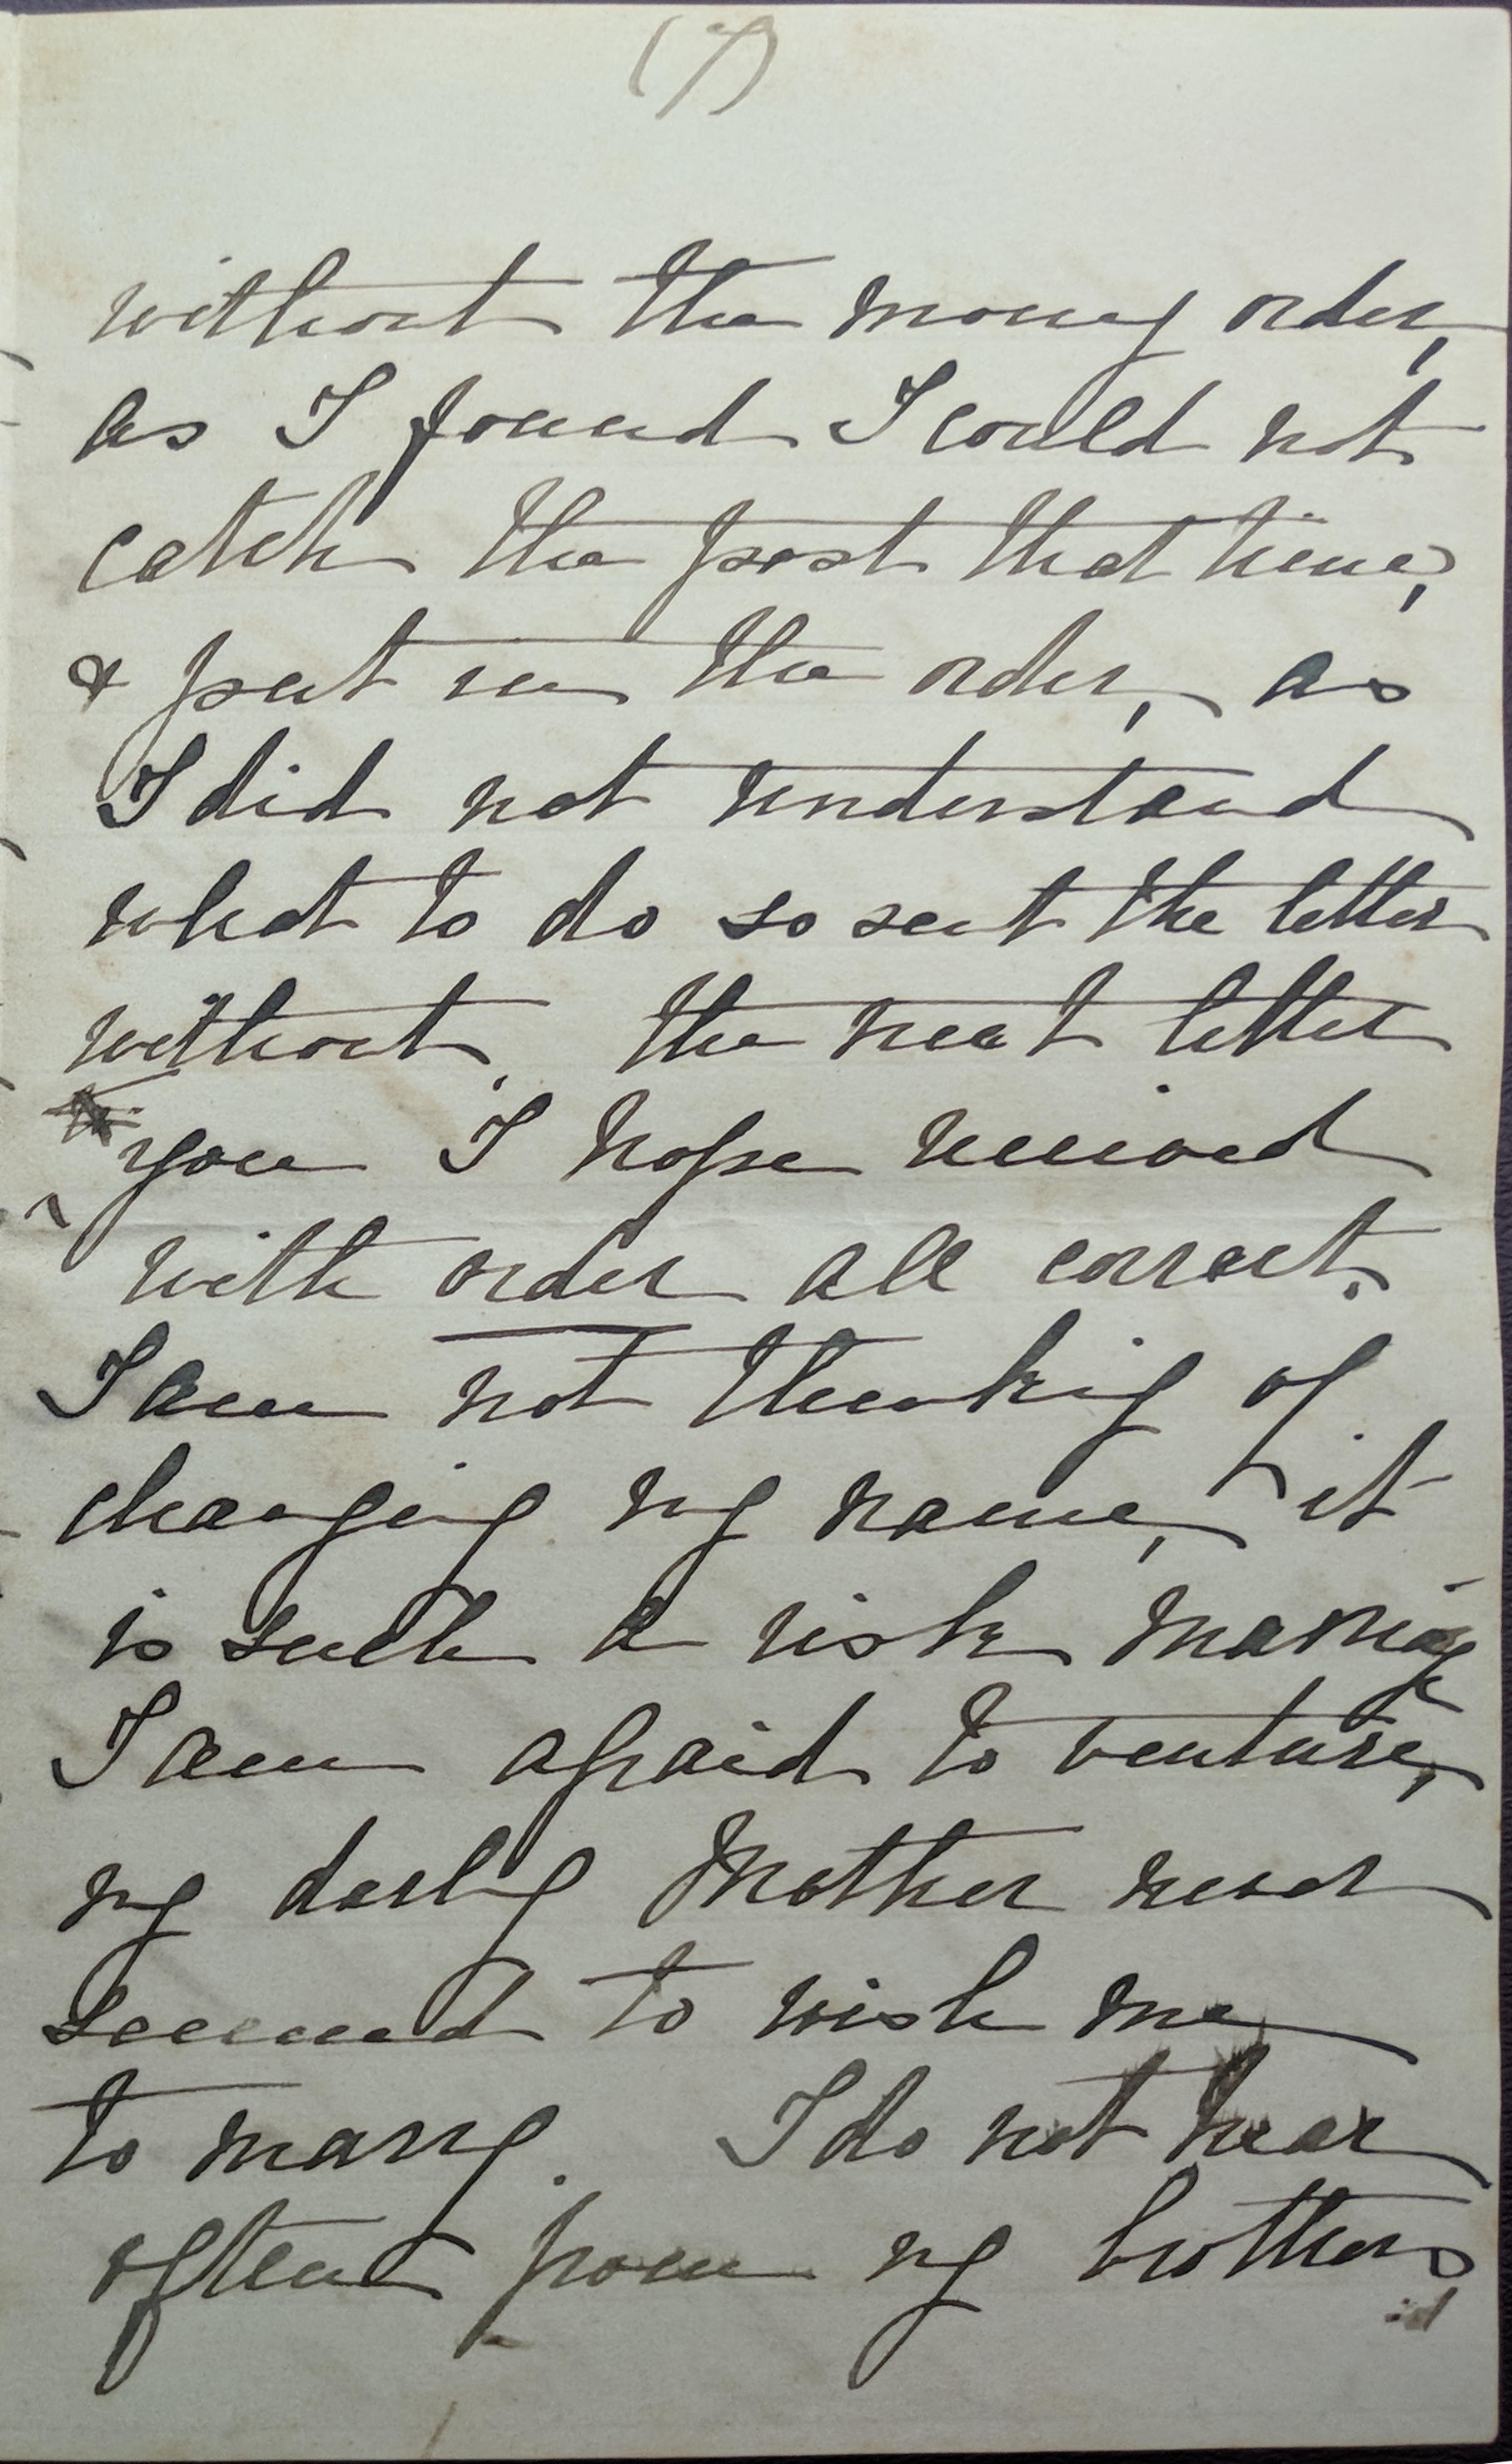 (7)
without the money order,
as I found I could not
catch the post that time,
& put in the order, as
I did not understand
what to do so sent the letter
without, the next letter
you I hope received
with order all correct.
I am not thinking of
changing my name, it
is such a risk marriage
I am afraid to venture,
my darling Mother never
seemed to wish me
to marry. I do not hear
often from my brothers,